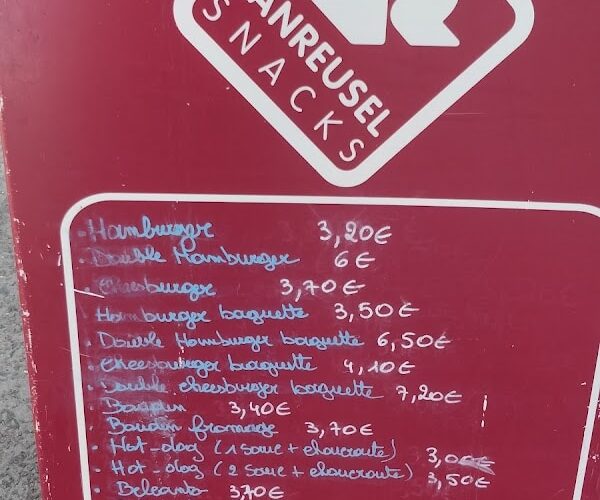 VANREUSEL
SNACKS
- Hamburger 3,20€
- Double Hamburger 6€
- Cheesburger 3,70€
- Hamburger baguette 3,50€
- Double Hamburger baguette 6,50€
- Cheesburger baguette 4,10€
- Double cheesburger baguette 7,20€
- Boudin 3,40€
- Boudin fromage 3,70€
- Hot-dog (1 sauc + choucroute) 3,0€
- Hot-dog (2 sauc + choucroute) 3,50€
- Belcanto 3,70€